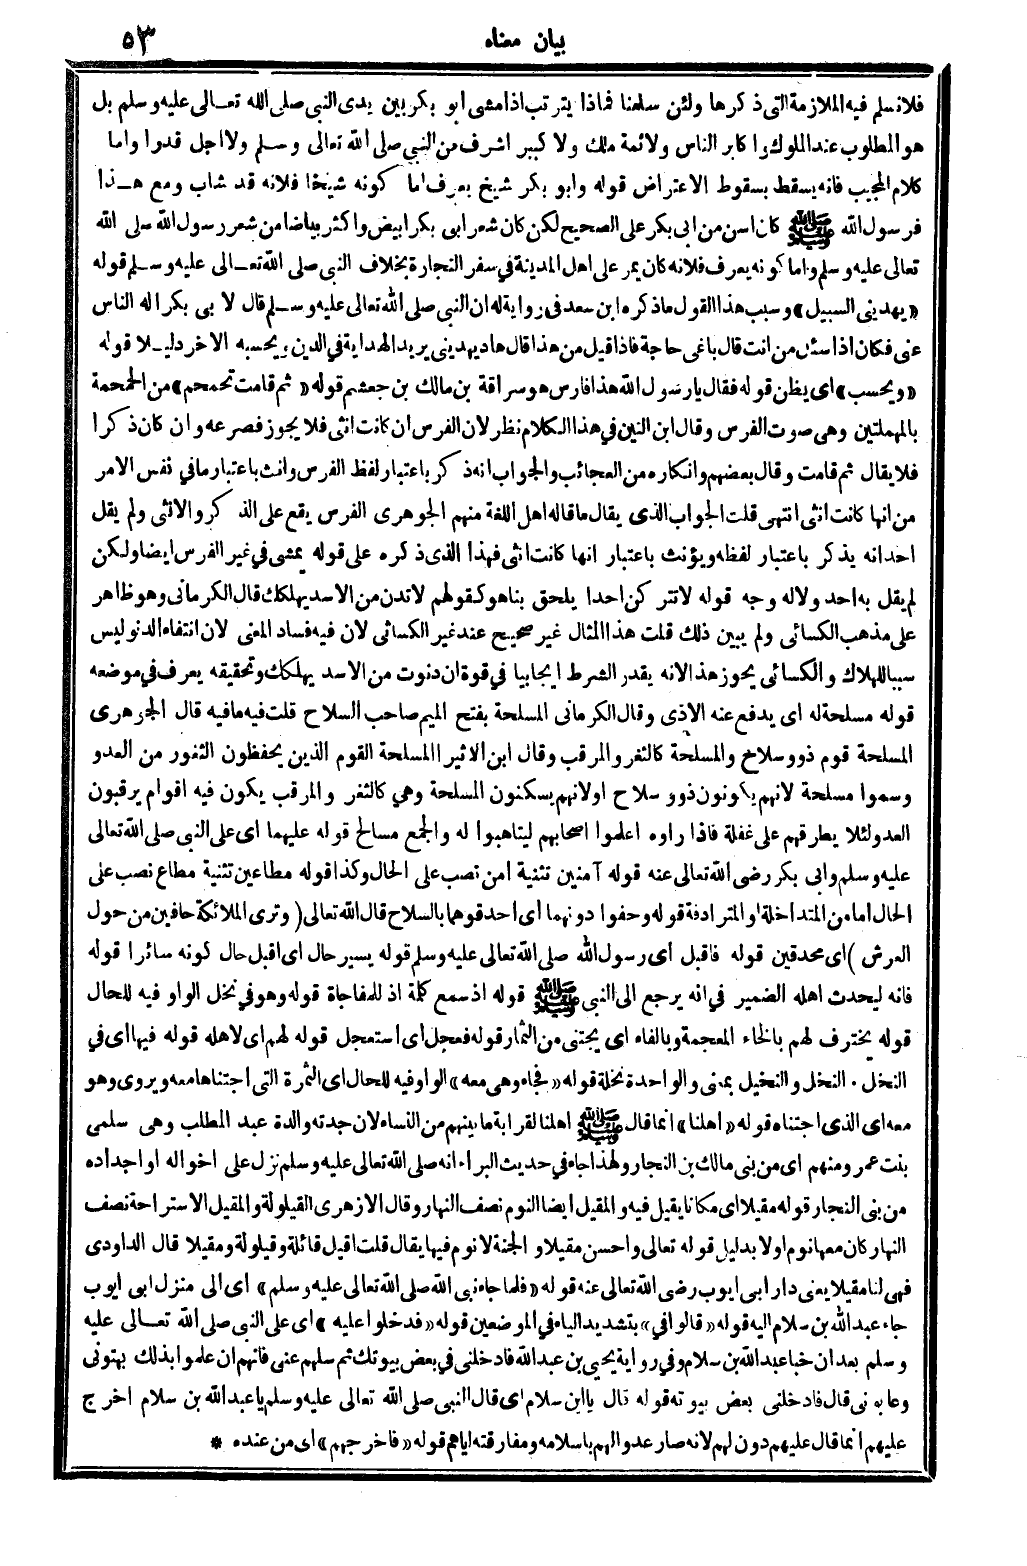 بيان معناه ٥٣
فلانسلم فيه الملازمة التى ذكرها ولئن سلمنا فماذا يترتب اذا مشى ابو بكر بين يدى النبي صلى الله تعالى عليه وسلم بل
هو المطلوب عند الملوك واكابر الناس ولا ثمة ملك ولا كبير اشرف من النبي صلى الله تعالى وسلم ولا اجل قدرا واما
كلام المجيب فانه يسقط بسقوط الاعتراض قوله وابو بكر شيخ يعرف اما كونه شيخا فلانه قد شاب ومع هذا
فرسول الله ﷺ كان اسن من ابى بكر على الصحيح لكن كان شعر ابى بكر ابيض واكثر بياضا من شعر رسول الله صلى الله
تعالى عليه وسلم واما كونه يعرف فلانه كان يمر على اهل المدينة في سفر التجارة بخلاف النبي صلى الله تعالى عليه وسلم قوله
«يهديني السبيل» وسبب هذا القول ما ذكره ابن سعد فى رواية له ان النبي صلى الله تعالى عليه وسلم قال لابي بكر اله الناس
عنى فكان اذا سئل من انت قال باغى حاجة فاذا قيل من هذا قال هاد يهديني يريد الهداية في الدين ويحسبه الاخر دليلا قوله
«ويحسب» اى يظن قوله فقال يا رسول الله هذا فارس هو سراقة بن مالك بن جعشم قوله «ثم قامت تحمحم» من الحمحمة
بالمهملتين وهى صوت الفرس وقال ابن التين في هذا الكلام نظر لان الفرس ان كانت انثى فلا يجوز فصرعه وان كان ذكرا
فلا يقال ثم قامت وقال بعضهم وانكاره من العجائب والجواب انه ذكر باعتبار لفظ الفرس وانث باعتبار ما في نفس الامر
من انها كانت انثى انتهى قلت الجواب الذى يقال ما قاله اهل اللغة منهم الجوهرى الفرس يقع على الذكر والانثى ولم يقل
احد انه يذكر باعتبار لفظه ويؤنث باعتبار انها كانت انثى فهذا الذى ذكره على قوله يمشى في غير الفرس ايضا ولكن
لم يقل به احد ولا له وجه قوله لا تتركن احدا يلحق بنا هو كقولهم لا تدن من الاسد يهلكك قال الكرمانى وهو ظاهر
على مذهب الكسائى ولم يبين ذلك قلت هذا المثال غير صحيح عند غير الكسائى لان فيه فساد المعنى لان انتفاء الدنو ليس
سببا للهلاك والكسائى يجوز هذا لانه يقدر الشرط ايجابيا في قوة ان دنوت من الاسد يهلكك وتحقيقه يعرف في موضعه
قوله مسلحة له اى يدفع عنه الاذى وقال الكرمانى المسلحة بفتح الميم صاحب السلاح قلت فيه ما فيه قال الجوهرى
المسلحة قوم ذوو سلاح والمسلحة كالثغر والمرقب وقال ابن الاثير المسلحة القوم الذين يحفظون الثغور من العدو
وسموا مسلحة لانهم يكونون ذوو سلاح او لانهم يسكنون المسلحة وهي كالثغر والمرقب يكون فيه اقوام يرقبون
العدو لئلا يطرقهم على غفلة فاذا راوه اعلموا اصحابهم ليتاهبوا له والجمع مسالح قوله عليهما اى على النبي صلى الله تعالى
عليه وسلم وابى بكر رضى الله تعالى عنه قوله آمنين تثنية امن نصب على الحال وكذا قوله مطاعين تثنية مطاع نصب على
الحال اما من المتداخلة او المترادفة قوله وحفوا دونهما أى احدقوهما بالسلاح قال الله تعالى (وترى الملائكة حافين من حول
العرش) اى محدقين قوله فاقبل اى رسول الله صلى الله تعالى عليه وسلم قوله يسير حال اى اقبل حال كونه سائرا قوله
فانه ليحدث اهله الضمير في انه يرجع الى النبي ﷺ قوله اذ سمع كلمة اذ للمفاجاة قوله وهو في نخل الواو فيه للحال
قوله يخترف لهم بالخاء المعجمة وبالفاء اى يجتنى من الثمار قوله فعجل اى استعجل قوله لهم اى لاهله قوله فيها اى في
النخل . النخل والنخيل بمعنى والواحدة نخلة قوله «فجاء وهى معه» الواو فيه للحال اى الثمرة التى اجتناها معه ويروى وهو
معه اى الذى اجتناه قوله «اهلنا» انما قال ﷺ اهلنا لقرابة ما بينهم من النساء لان جدته والدة عبد المطلب وهى سلمى
بنت عمرو منهم اى من بنى مالك بن النجار ولهذا جاء في حديث البراء انه صلى الله تعالى عليه وسلم نزل على اخواله او اجداده
من بنى النجار قوله مقيلا اى مكانا يقيل فيه والمقيل ايضا النوم نصف النهار وقال الازهرى القيلولة والمقيل الاستراحة نصف
النهار كان معها نوم اولا بدليل قوله تعالى واحسن مقيلا والجنة لا نوم فيها يقال قلت اقيل قائلة وقيلولة ومقيلا قال الداودى
فهى لنا مقيلا يعنى دار ابى ايوب رضى الله تعالى عنه قوله «فلما جاء نبى الله صلى الله تعالى عليه وسلم» اى الى منزل ابى ايوب
جاء عبد الله بن سلام اليه قوله «قالوا في» بتشديد الياء في الموضعين قوله «فدخلوا عليه» اى على النبي صلى الله تعالى عليه
وسلم بعد ان خبا عبد الله بن سلام وفي رواية يحيى بن عبد الله فادخلنى في بعض بيوتك ثم سلهم عنى فانهم ان علموا بذلك بهتونى
وعابونى قال فادخلنى بعض بيوته قوله قال يا ابن سلام اى قال النبي صلى الله تعالى عليه وسلم يا عبد الله بن سلام اخرج
عليهم انما قال عليهم دون لهم لانه صار عدوا لهم باسلامه ومفارقته اياهم قوله «فاخرجهم» اى من عنده *